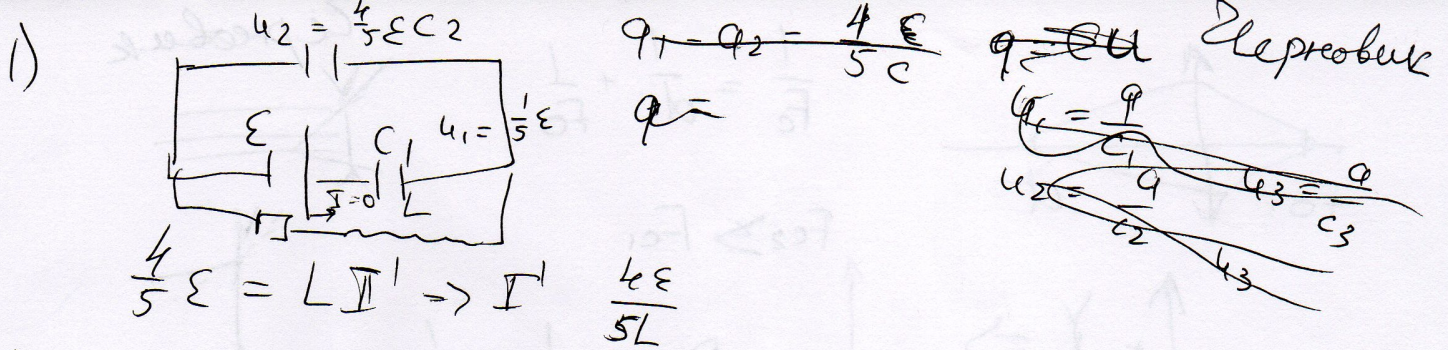 1)
u2 = 4/5 ε C2
ε
I=0
C1
u1 = 1/5 ε
L
4/5 ε = L I' => I' 4ε/5L
q1 - q2 = 4/5 ε/C
q =
q = CU
Черновик
u1 = q/C1
u2 = q/C2
u3 = q/C3
u3